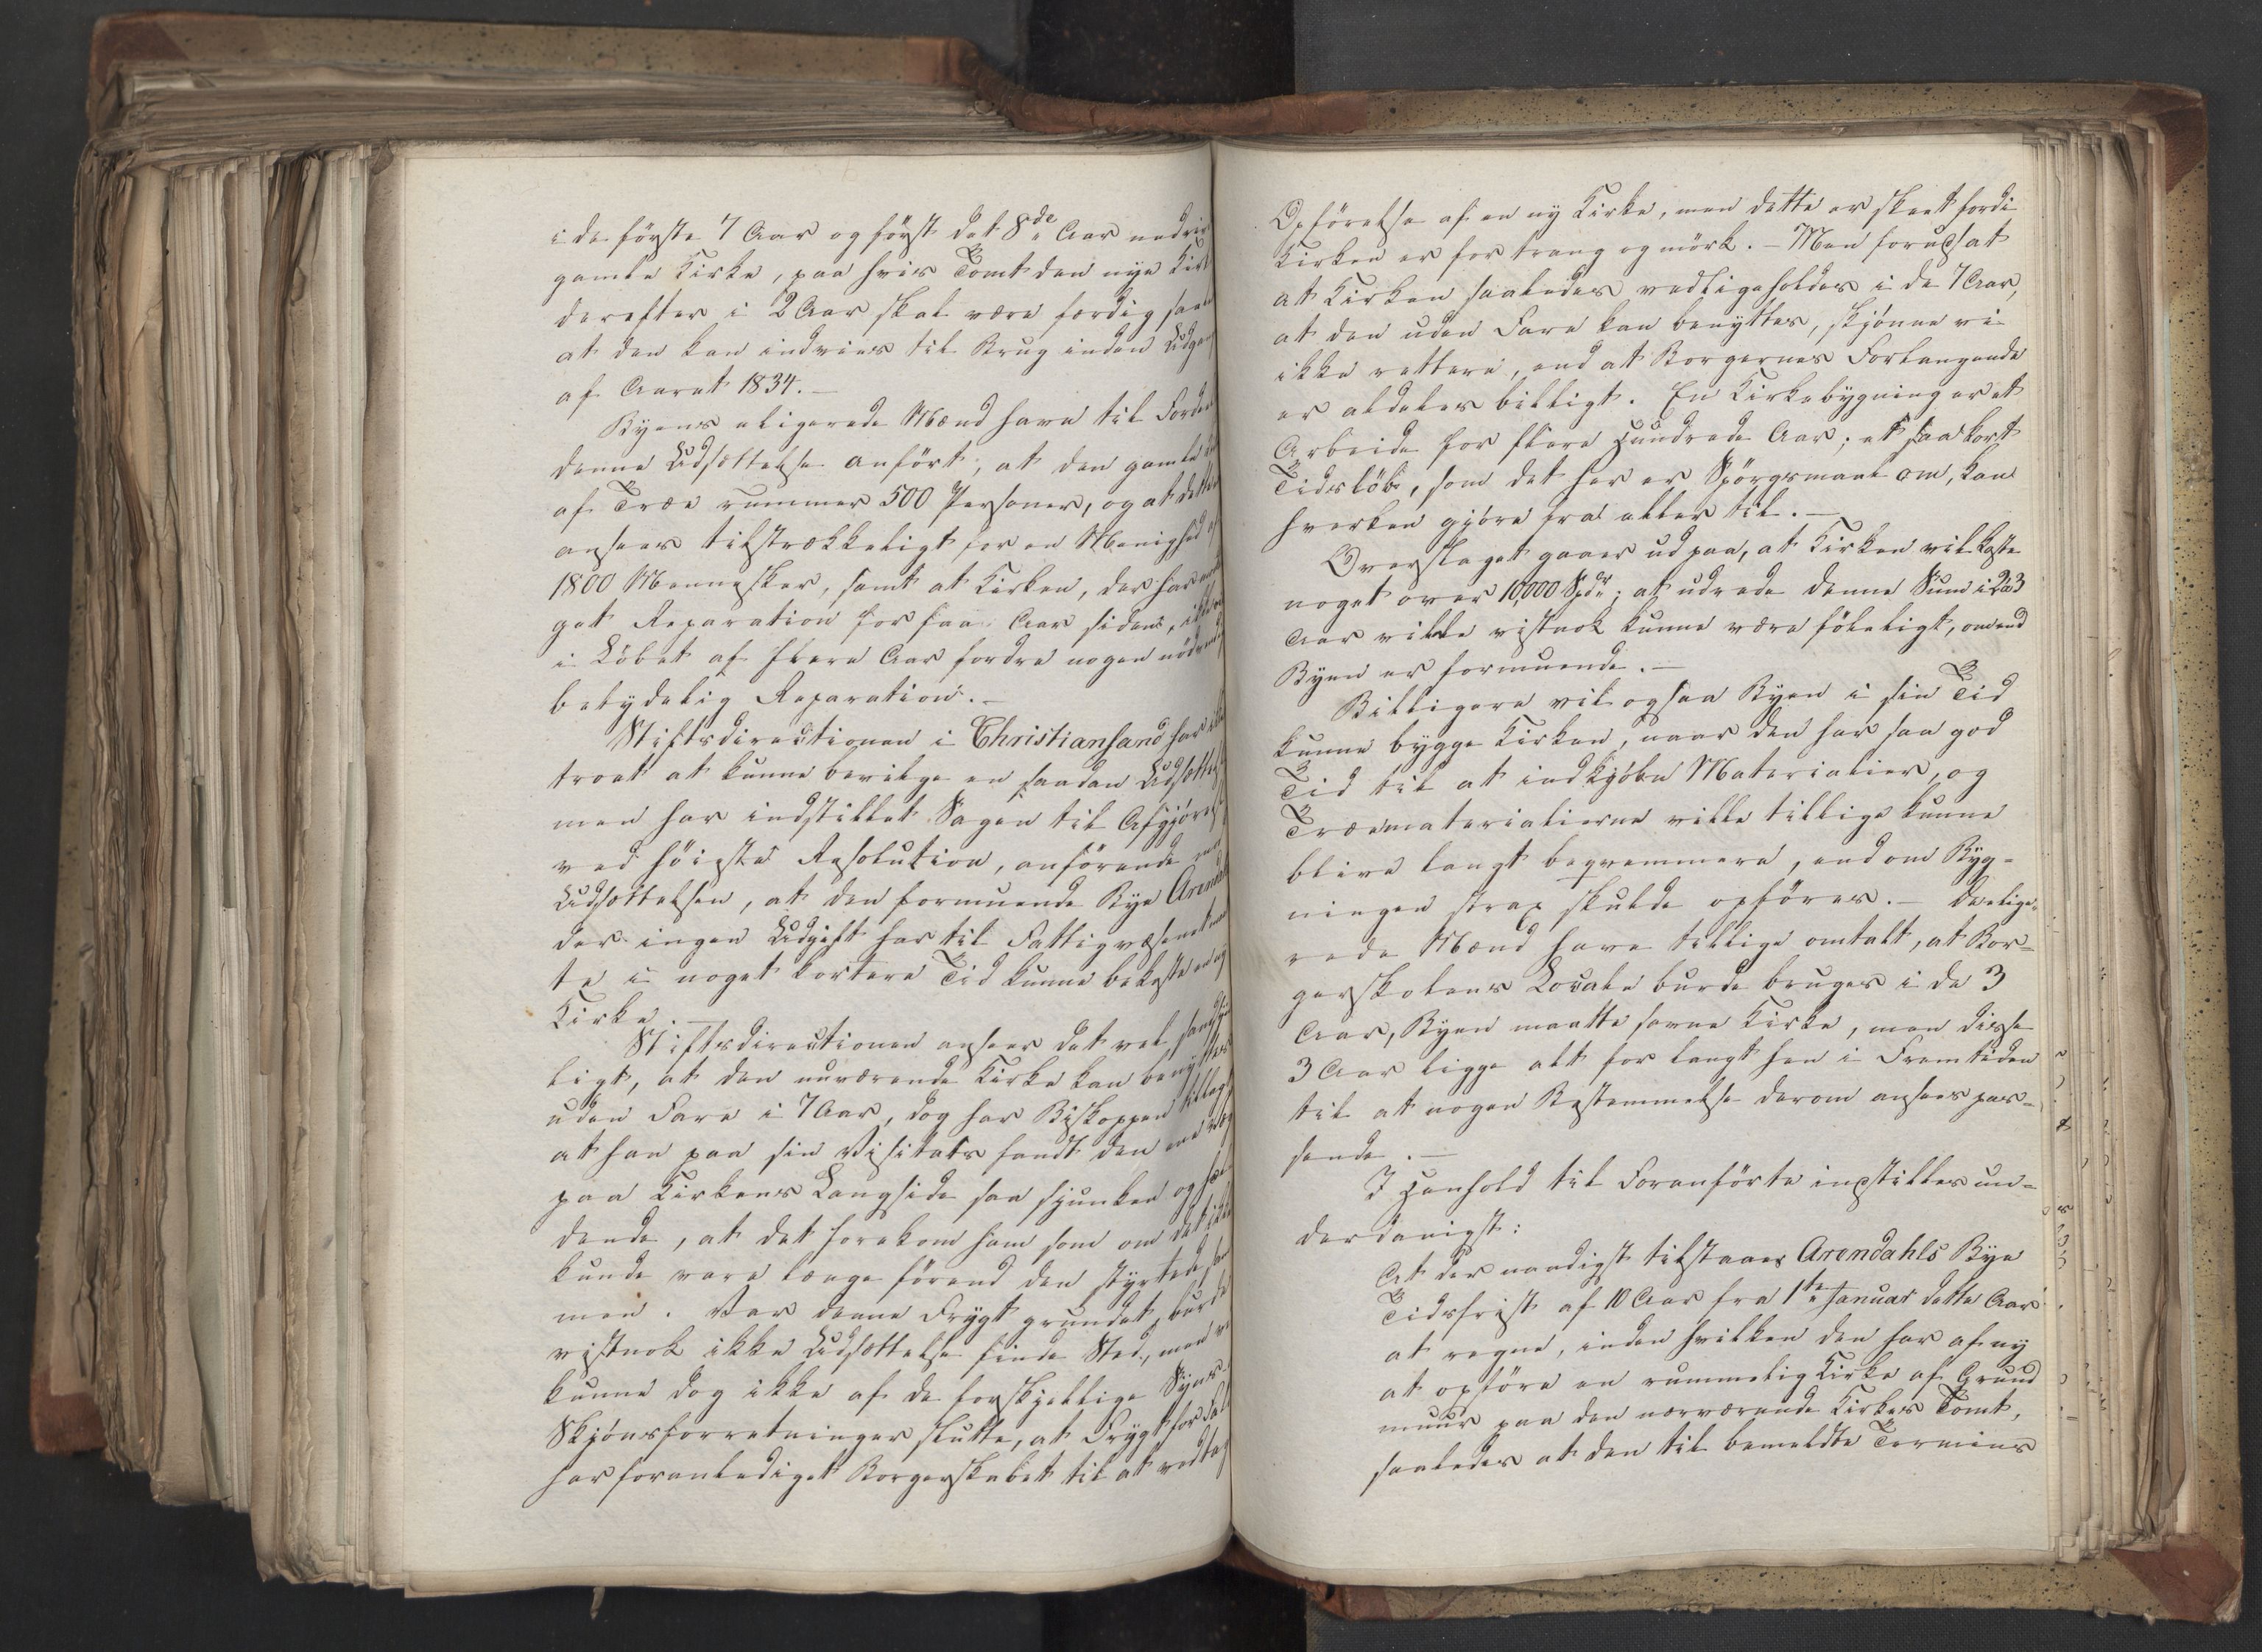 i de förste 7 Aar og först det 8de Aar nedrive
gamle Kirke, paa hvis Tomt den nye Kirk
derefter i 2 Aar skal være færdig saal
at den kan indvies til Brug inden Udgang
af Aaret 1834.—
Byens eligerede Mænd have til Fordel
denne Udsættelse anfört, at den gamle
af Træe rummer 500 Personer, og at dette
ansees tilstrækkeligt for en Menighed af
1800 Mennesker, samt at Kirken, der har
get Reparation for faa Aar siden, ikke
i Löbet af flere Aar fordre nogen nödvendig
betydelig Reparation.—
Stiftsdirectionen i Christiansand har ikke
troet at kunne bevilge en saadan Udsættelse
men har indstillet Sagen til Afgjörelse
ved höieste Resolution, anförende
Udsættelsen, at den formuende Bye Arendal
der ingen Udgift har til Fattigvæsenet
te i noget kortere Tid kunne bekoste en ny
Kirke.—
Stiftsdirectionen anseer det vel sandsyn
ligt, at den nuværende Kirke kan benyttes
uden Fare i 7 Aar, dog har Biskoppen tillagt
at han paa sin Visitats fandt den ene Væg
paa Kirkens Langside saa sjunken og hæl
dende, at det forekom ham som om det ikke
kunde vare længe förend den styrtede sam
men. Var denne Frygt grundet, burde
vistnok ikke Udsættelse finde Sted, men vi
kunne dog ikke af de forskjellige Syns-
Skjönsforretninger slutte, at Frygt for Fald
har foranlediget Borgerskabet til at vedtage
Opförelse af en ny Kirke, men dette er skeet fordi
Kirken er for trang og mörk.— Men forudsat
at Kirken saaledes vedligeholdes i de 7 Aar,
at den uden Fare kan benyttes, skjönne vi
ikke rettere, end at Borgernes Forlangende
er aldeles billigt. En Kirkebygning er et
Arbeide for flere Hundrede Aar; et saa kort
Tidslöb, som det her er Spörgsmaal om, kan
hverken gjöre fra eller til.—
Overslaget gaaer ud paa, at Kirken vil koste
noget over 10,000 Spdr; at udrede denne Sum i 2 a 3
Aar ville vistnok kunne være föleligt, om end
Byen er formuende.—
Billigere vil ogsaa Byen i sin Tid
kunne bygge Kirken, naar den har saa god
Tid til at indkjöbe Materialier, og
Træematerialierne ville tillige kunne
blive langt beqvemmere, end om Byg=
ningen strax skulde opföres.— De elige=
rede Mænd have tillige omtalt, at Bor=
gerskolens Locale burde bruges i de 3
Aar, Byen maatte savne Kirke, men disse
3 Aar ligge alt for langt hen i Fremtiden
til at nogen Bestemmelse derom ansees pas=
sende.—
I Henhold til Foranförte indstilles un=
derdanigst:
At der naadigst tilstaaes Arendahls Bye
Tidsfrist af 10 Aar fra 1te Januar dette Aar
at regne, inden hvilken den har af ny
at opföre en rummelig Kirke af Grund
muur paa den nærværende Kirkes Tomt,
saaledes at den til bemeldte Termins